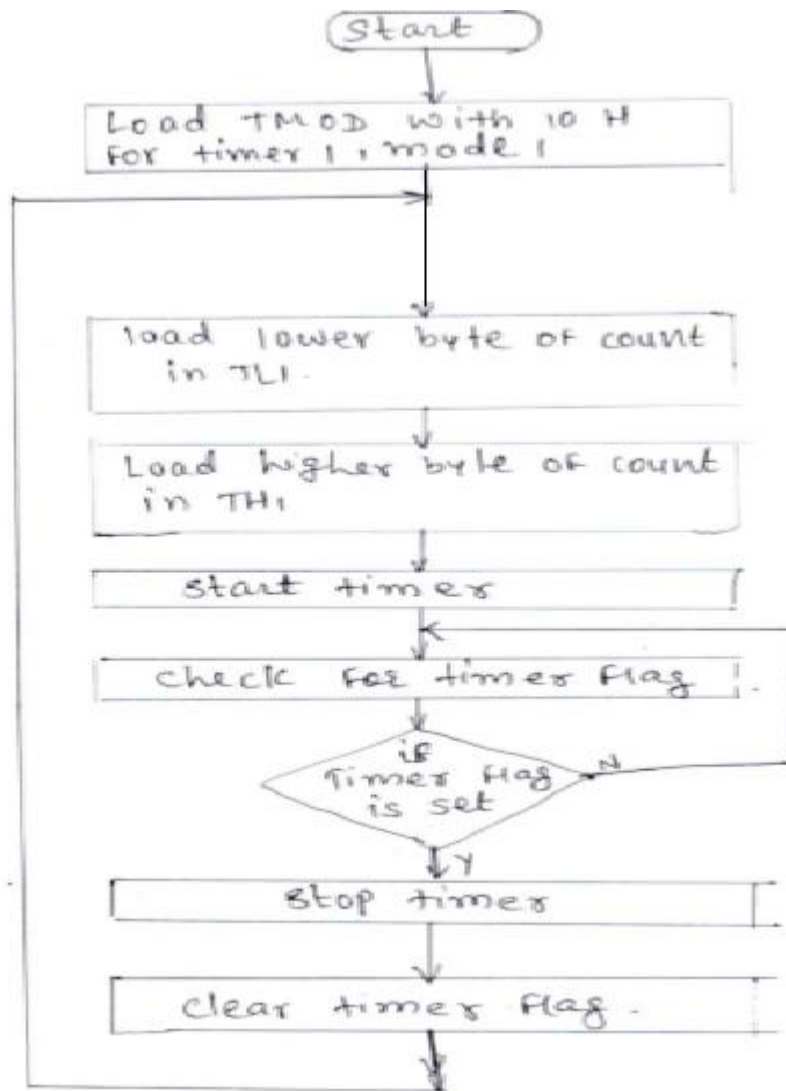 Start
Load TMOD with 10 H
For timer 1, mode 1
load lower byte of count
in TL1.
Load higher byte of count
in TH1
Start timer
Check For timer Flag
if
Timer Flag
is set
N
Y
Stop timer
Clear timer Flag.